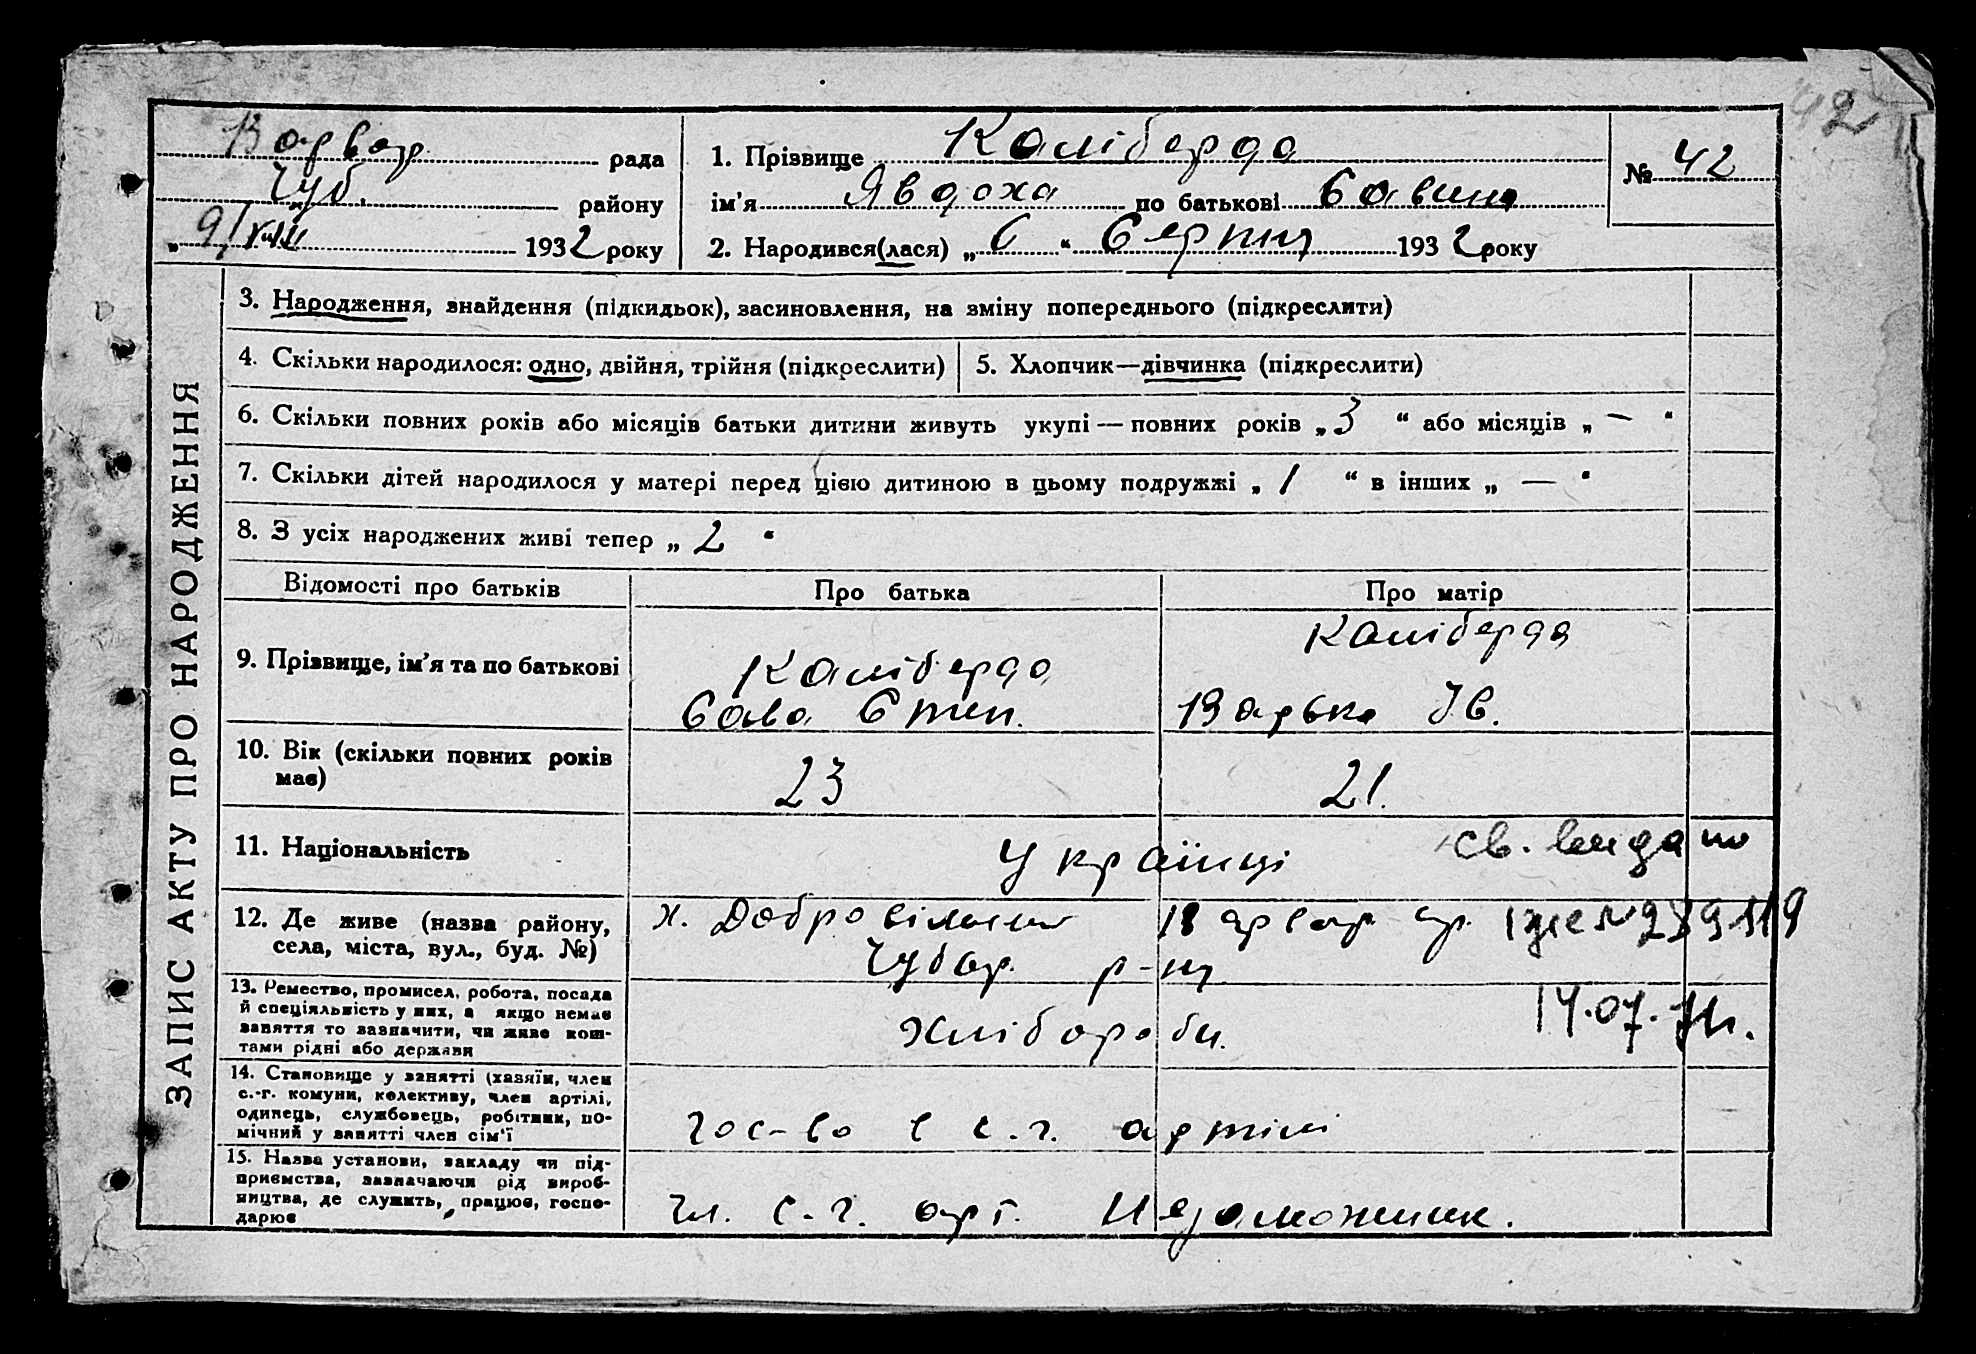 42
Варвар. рада
Чуб. району
„ 9/VIII 1932 року
1. Прізвище Каліберда
ім'я Явдоха по батькові Савина
2. Народився(лася) „ 6 “ Серпня 1932 року
№ 42
ЗАПИС АКТУ ПРО НАРОДЖЕННЯ
3. Народження, знайдення (підкидьок), засиновлення, на зміну попереднього (підкреслити)
4. Скільки народилося: одно, двійня, трійня (підкреслити)
5. Хлопчик—дівчинка (підкреслити)
6. Скільки повних років або місяців батьки дитини живуть укупі — повних років „ 3 “ або місяців „ — “
7. Скільки дітей народилося у матері перед цією дитиною в цьому подружжі „ 1 “ в інших „ — “
8. З усіх народжених живі тепер „ 2 “
Відомості про батьків Про батька Про матір
9. Прізвище, ім'я та по батькові
Каліберда
Сава Степ.
Каліберда
Варька Ів.
10. Вік (скільки повних років
має)
23
21.
11. Національність
Українці
св. видано
12. Де живе (назва району,
села, міста, вул., буд. №)
х. Добровільний Варвар. ср.
Чубар. р-ну
14.07.
13. Ремество, промисел, робота, посада
й спеціяльність у них, а якщо немає
заняття то зазначити, чи живе кош-
тами рідні або держави
Хлібороби.
14. Становище у занятті (хазяїн, член
с.-г. комуни, колективу, член артілі,
одинець, службовець, робітник, по-
мічний у занятті член сім'ї
гос-во в с.-г. артілі
15. Назва установи, закладу чи під-
приємства, зазначаючи рід вироб-
ництва, де служить, працює, госпо-
дарює
Чл. с.-г. арт. Незаможник.